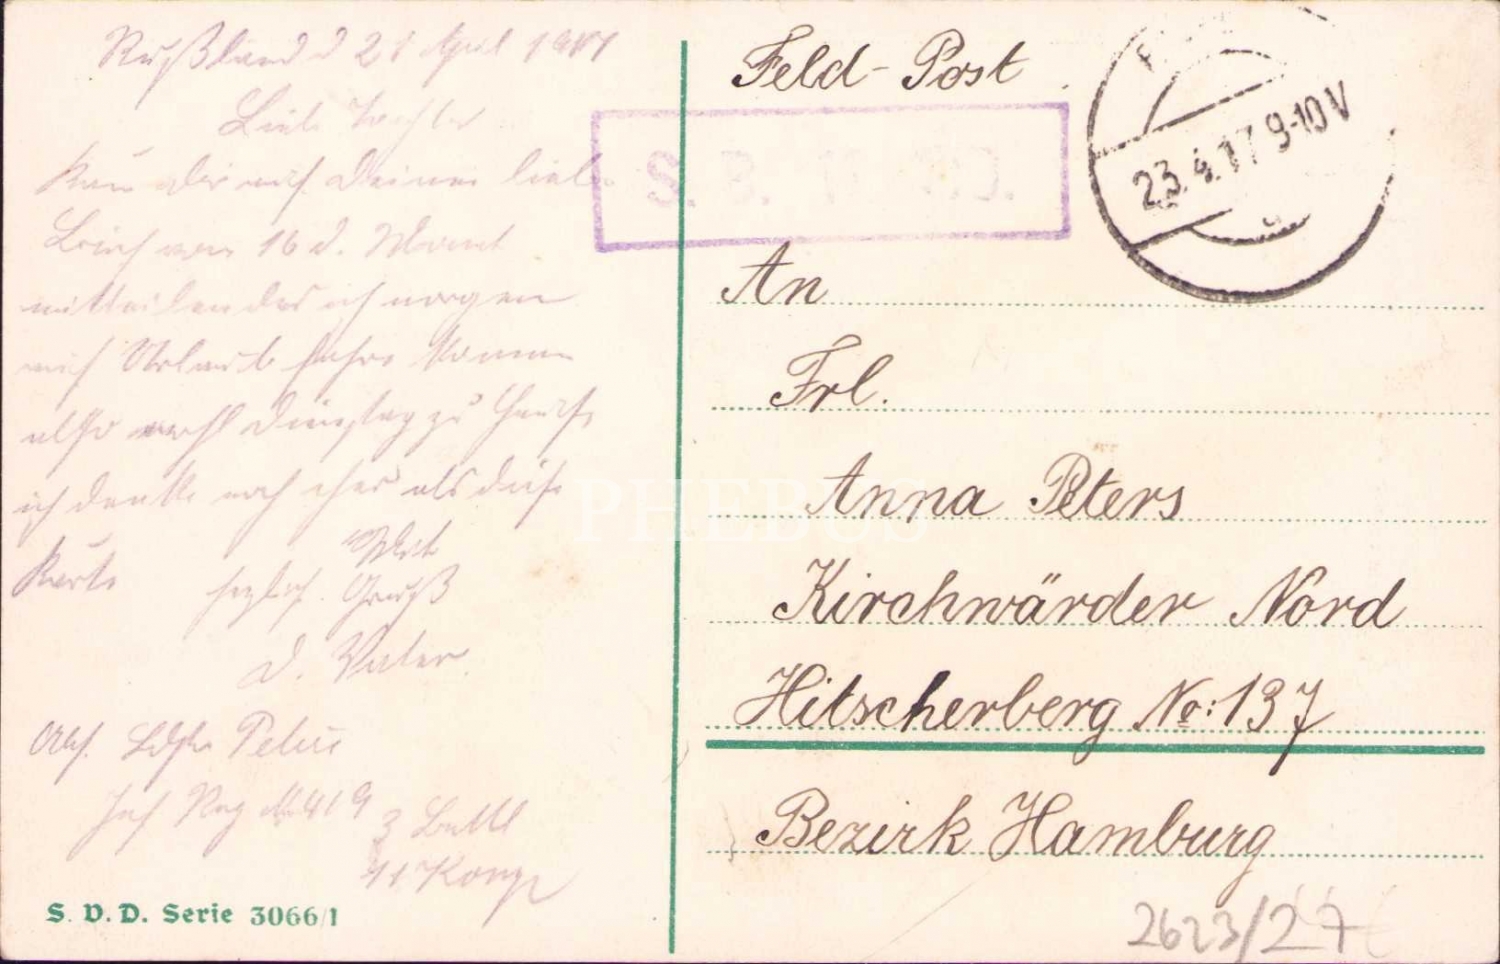 Rußland d 21 April 1917
Liebe Tochter
Kann dir auf Deinen lieben
Brief vom 16 d. Monat
mitteilen das ich morgen
auf Urlaub fahre komme
also wohl Dienstag zu Hause
ich denke noch eher als diese
Karte
Mit
herzlich. Gruß
D. Vater
Abs. Ldstr Peters
Inf Reg No 419
3 Battl
11 Komp
S. V. D. Serie 3066/1
Feld-Post
S. B. 11
23.4.17 9-10V
An
Frl.
Anna Peters
Kirchwärder Nord
Hitscherberg No: 137
Bezirk Hamburg
2623/27
PHEBUS